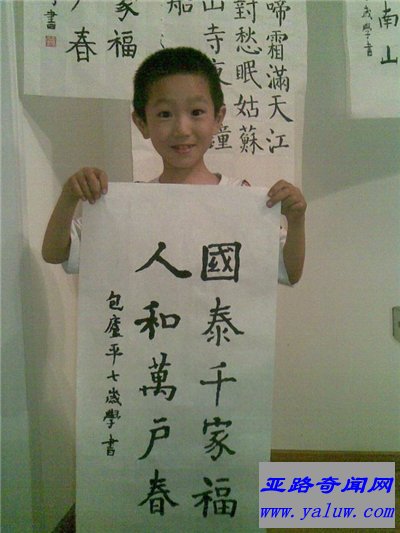 國泰千家福
人和萬戶春
包廬平七歲學書
啼霜滿天江
對愁眠姑蘇
山寺夜
鐘
船
家福
春
書
南山
歲學書
亚路奇闻网
www.yaluw.com